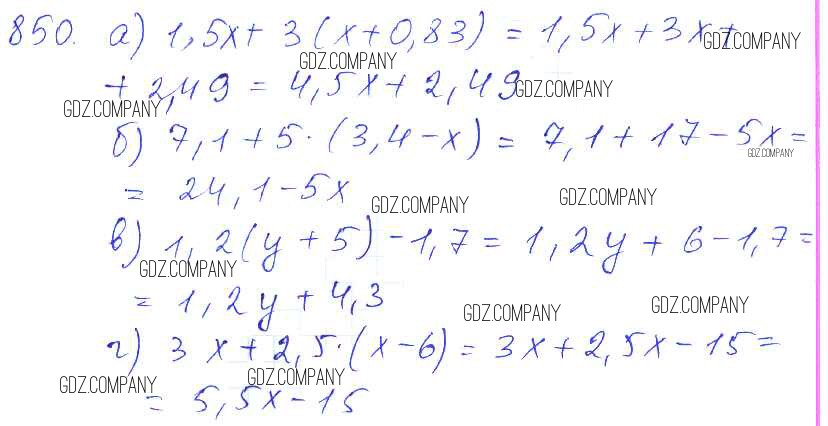 850. а) 1,5x + 3(x+0,83) = 1,5x + 3x +
GDZ.COMPANY
GDZ.COMPANY
+ 2,49 = 4,5x + 2,49
GDZ.COMPANY
GDZ.COMPANY
б) 7,1 + 5·(3,4 − x) = 7,1 + 17 − 5x =
GDZ.COMPANY
= 24,1 − 5x
GDZ.COMPANY
GDZ.COMPANY
в) 1,2(y + 5) − 1,7 = 1,2y + 6 − 1,7 =
GDZ.COMPANY
= 1,2y + 4,3
GDZ.COMPANY
GDZ.COMPANY
г) 3x + 2,5·(x − 6) = 3x + 2,5x − 15 =
GDZ.COMPANY
GDZ.COMPANY
= 5,5x − 15